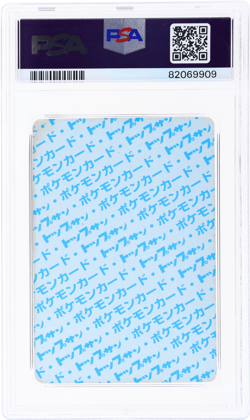 PSA
PSA
82069909
トップサン
ポケモンカード・トップサン
トップサン・ポケモンカード
ポケモンカード・トップサン
トップサン・ポケモンカード
ポケモンカード・トップサン
トップサン・ポケモンカード
ポケモンカード・トップサン
トップサン・ポケモンカード
ポケモンカード・トップサン
トップサン・ポケモンカード